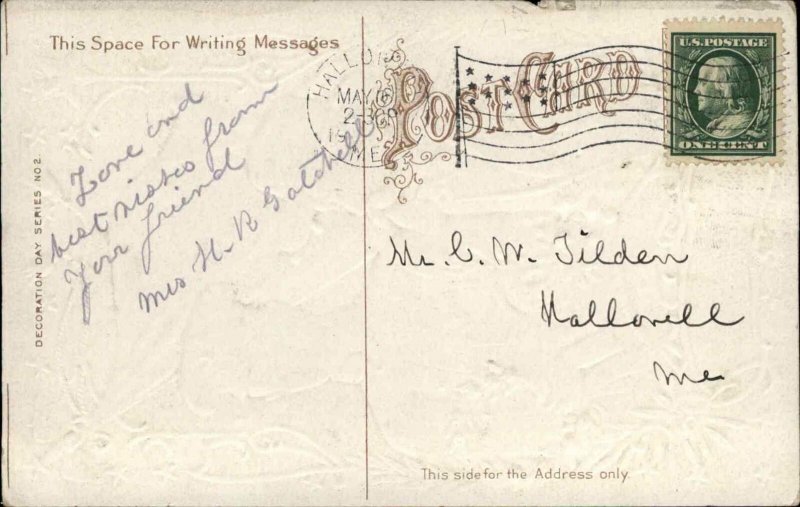 This Space For Writing Messages
Love and
best wishes from
Your friend
Mrs H. R Gatchell
DECORATION DAY SERIES NO 2.
MAY
ME
POST CARD
U.S. POSTAGE
ONE CENT
Mr. C. W. Tilden
Hallowell
Me
This side for the Address only.